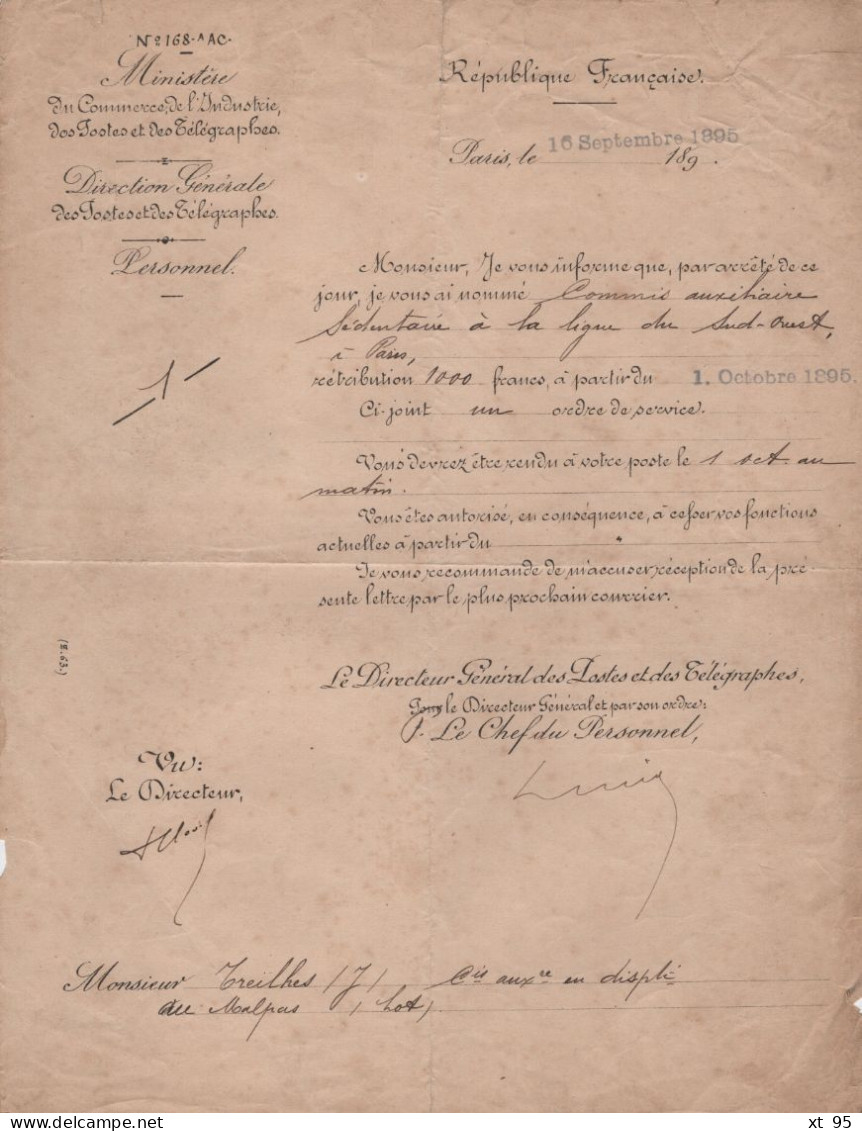 Nº 168-^AC-
Ministère
du Commerce, de l'Industrie,
des Postes et des Télégraphes.
Direction Générale
des Postes et des Télégraphes.
Personnel.
1
République Française.
Paris, le 16 Septembre 1895 189 .
Monsieur, Je vous informe que, par arrêté de ce
jour, je vous ai nommé Commis auxiliaire
sédentaire à la ligne du Sud-Ouest,
à Paris,
rétribution 1000 francs, à partir du 1. Octobre 1895.
Ci-joint un ordre de service.
Vous devrez être rendu à votre poste le 1 oct. au
matin.
Vous êtes autorisé, en conséquence, à cesser vos fonctions
actuelles à partir du "
Je vous recommande de m'accuser réception de la pré-
sente lettre par le plus prochain courrier.
(E.63.)
Le Directeur Général des Postes et des Télégraphes,
Pour le Directeur Général et par son ordre:
P. Le Chef du Personnel,
Vu:
Le Directeur,
Monsieur Treilhes (J) Cis auxre en dispté
au Malpas (Lot)
xt 95